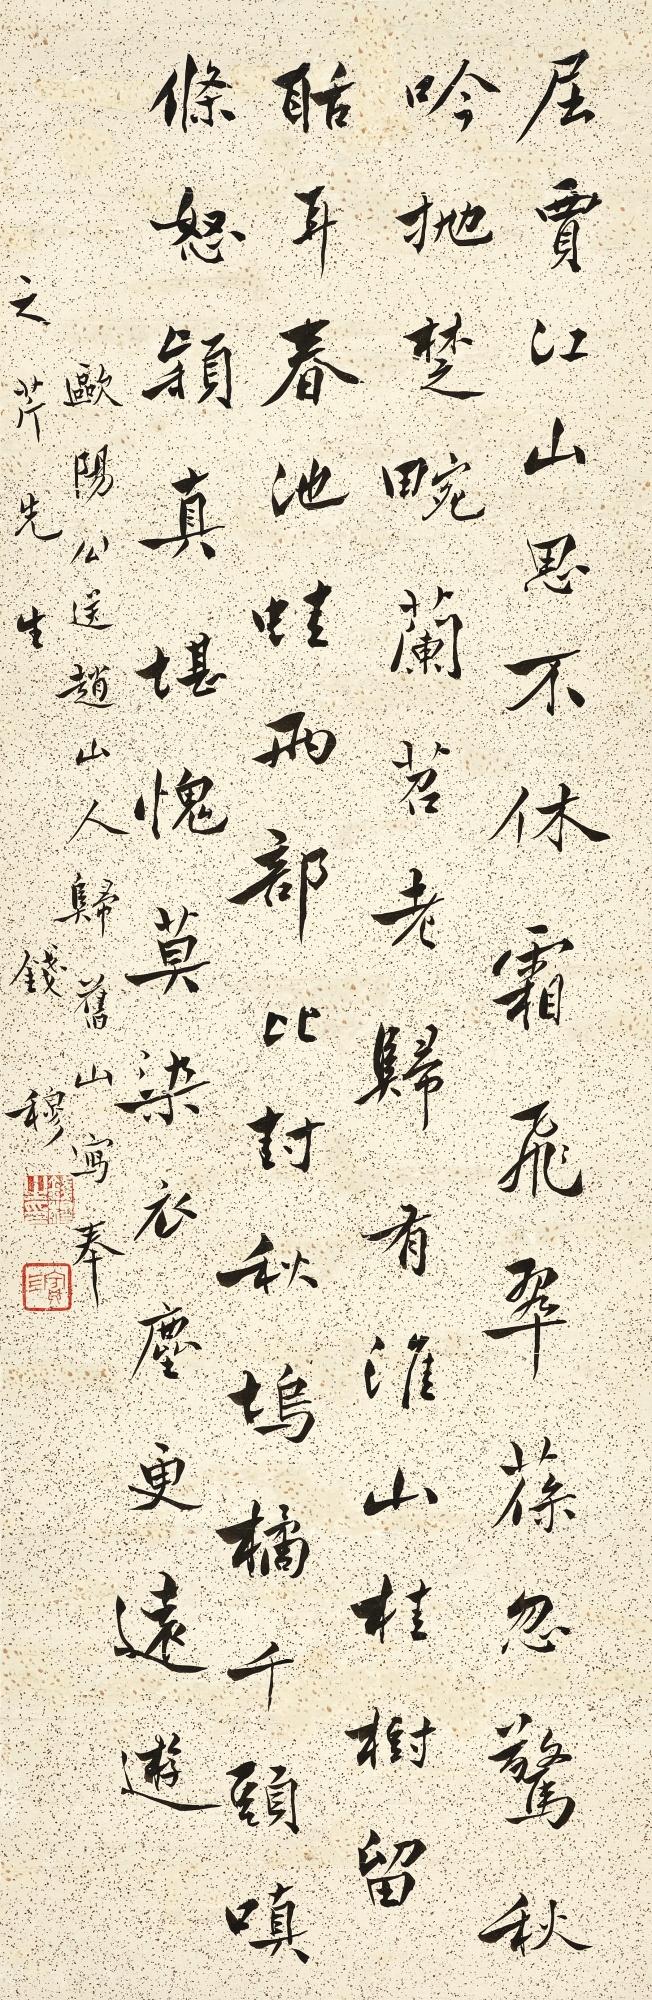 屈賈江山思不休霜飛翠葆忽驚秋
吟抛楚畹蘭苕老歸有淮山桂樹留
聒耳春池蛙兩部比封秋塢橘千頭嗔
條怒頴真堪愧莫染衣塵更遠遊
歐陽公送趙山人歸舊山寫奉
之芹先生 錢穆